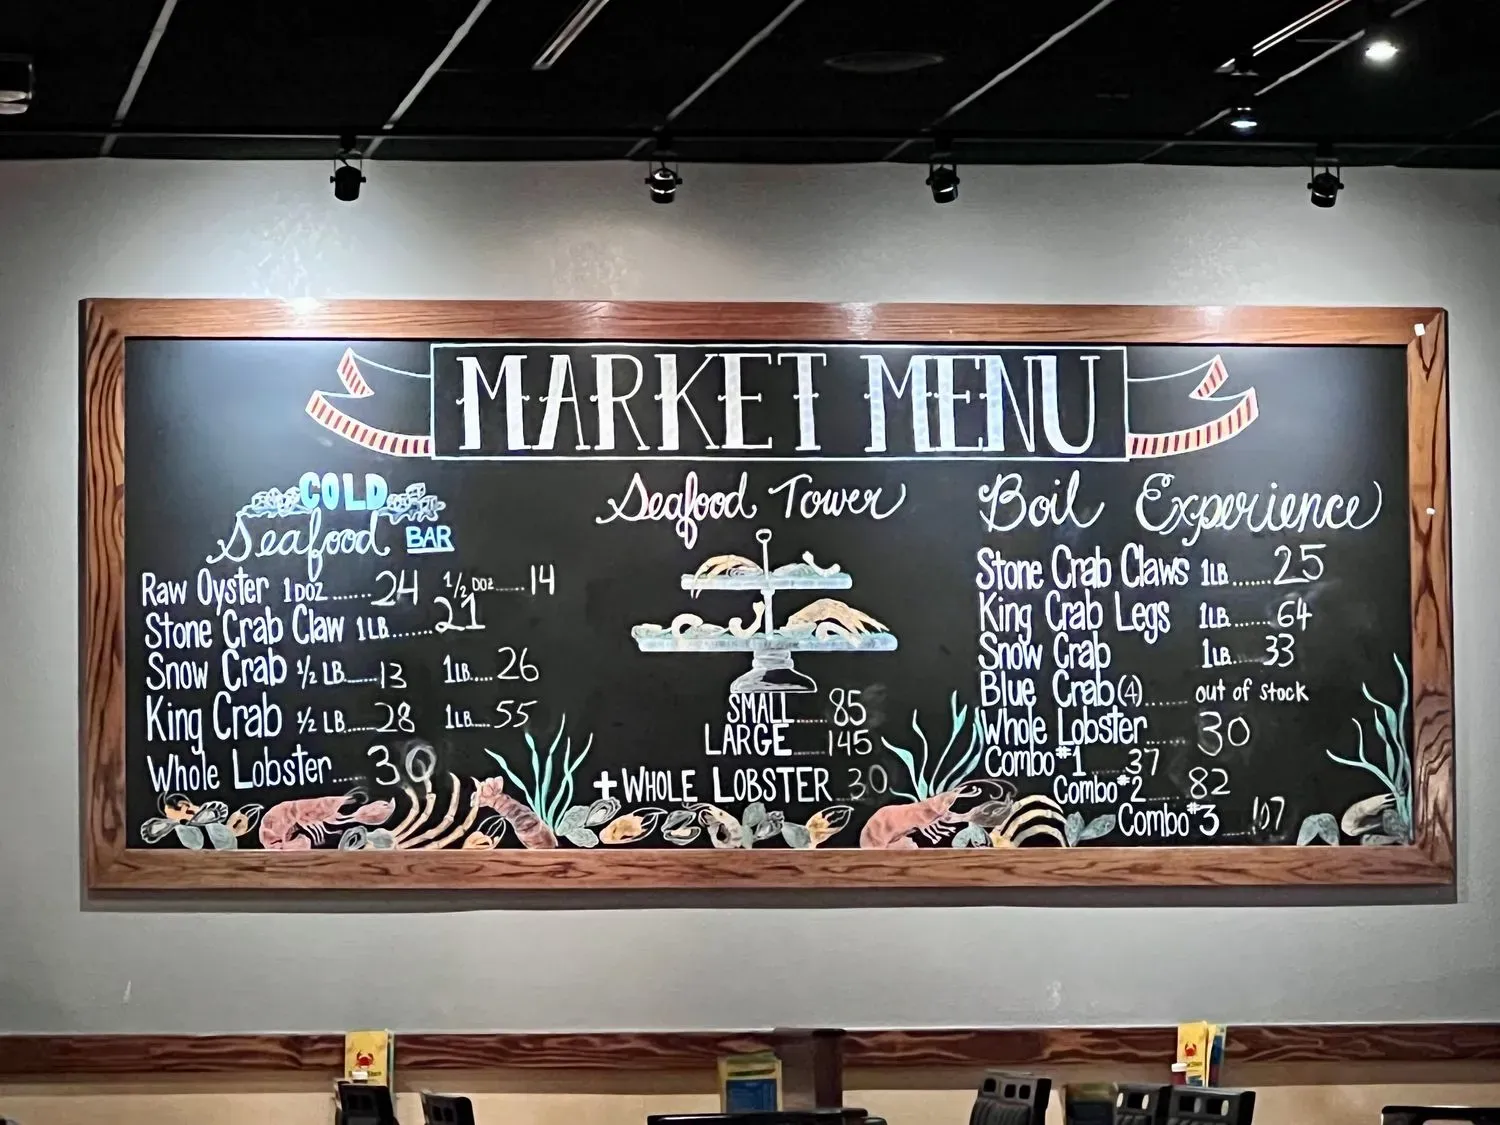 MARKET MENU
COLD
Seafood BAR
Raw Oyster 1 DOZ.......24 1/2 DOZ......14
Stone Crab Claw 1LB.......21
Snow Crab 1/2 LB.....13 1LB.....26
King Crab 1/2 LB.....28 1LB....55
Whole Lobster.....30
Seafood Tower
SMALL......85
LARGE.....145
+ WHOLE LOBSTER...30
Boil Experience
Stone Crab Claws 1LB.......25
King Crab Legs 1LB.......64
Snow Crab 1LB.....33
Blue Crab(4)...... out of stock
Whole Lobster...... 30
Combo#1.....37
Combo#2..... 82
Combo#3 ....107